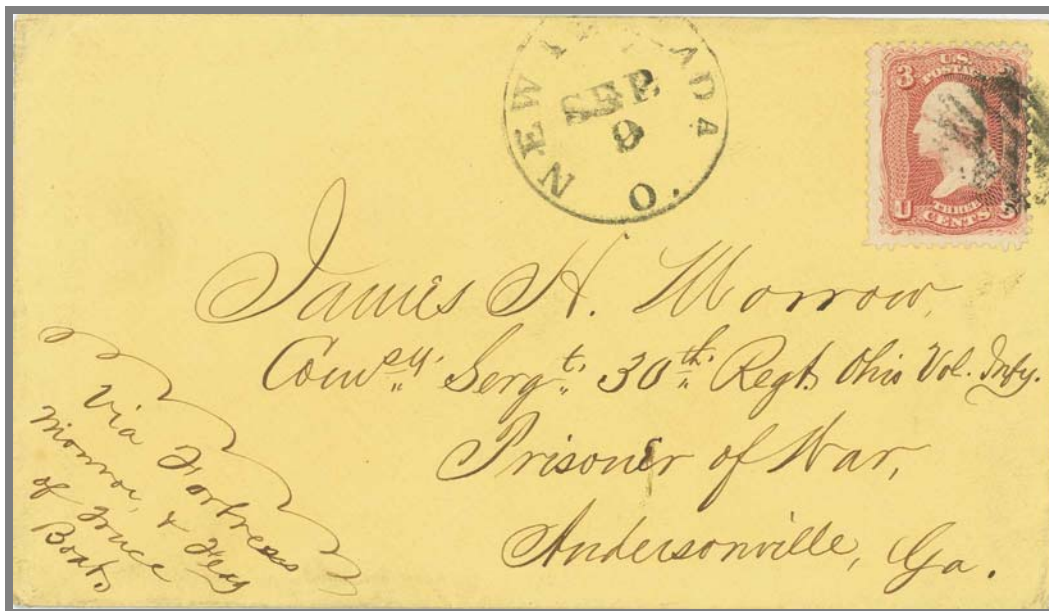 NEW
O.
SEP.
9
3
U.S.
POSTAGE
U S
THREE
CENTS
James H. Morrow,
Sergt. 30th. Regt. Ohio Vol. Infy.
Prisoner of War,
Andersonville, Ga.
Via Fortress
Monroe, & Flag
of Truce
Boat